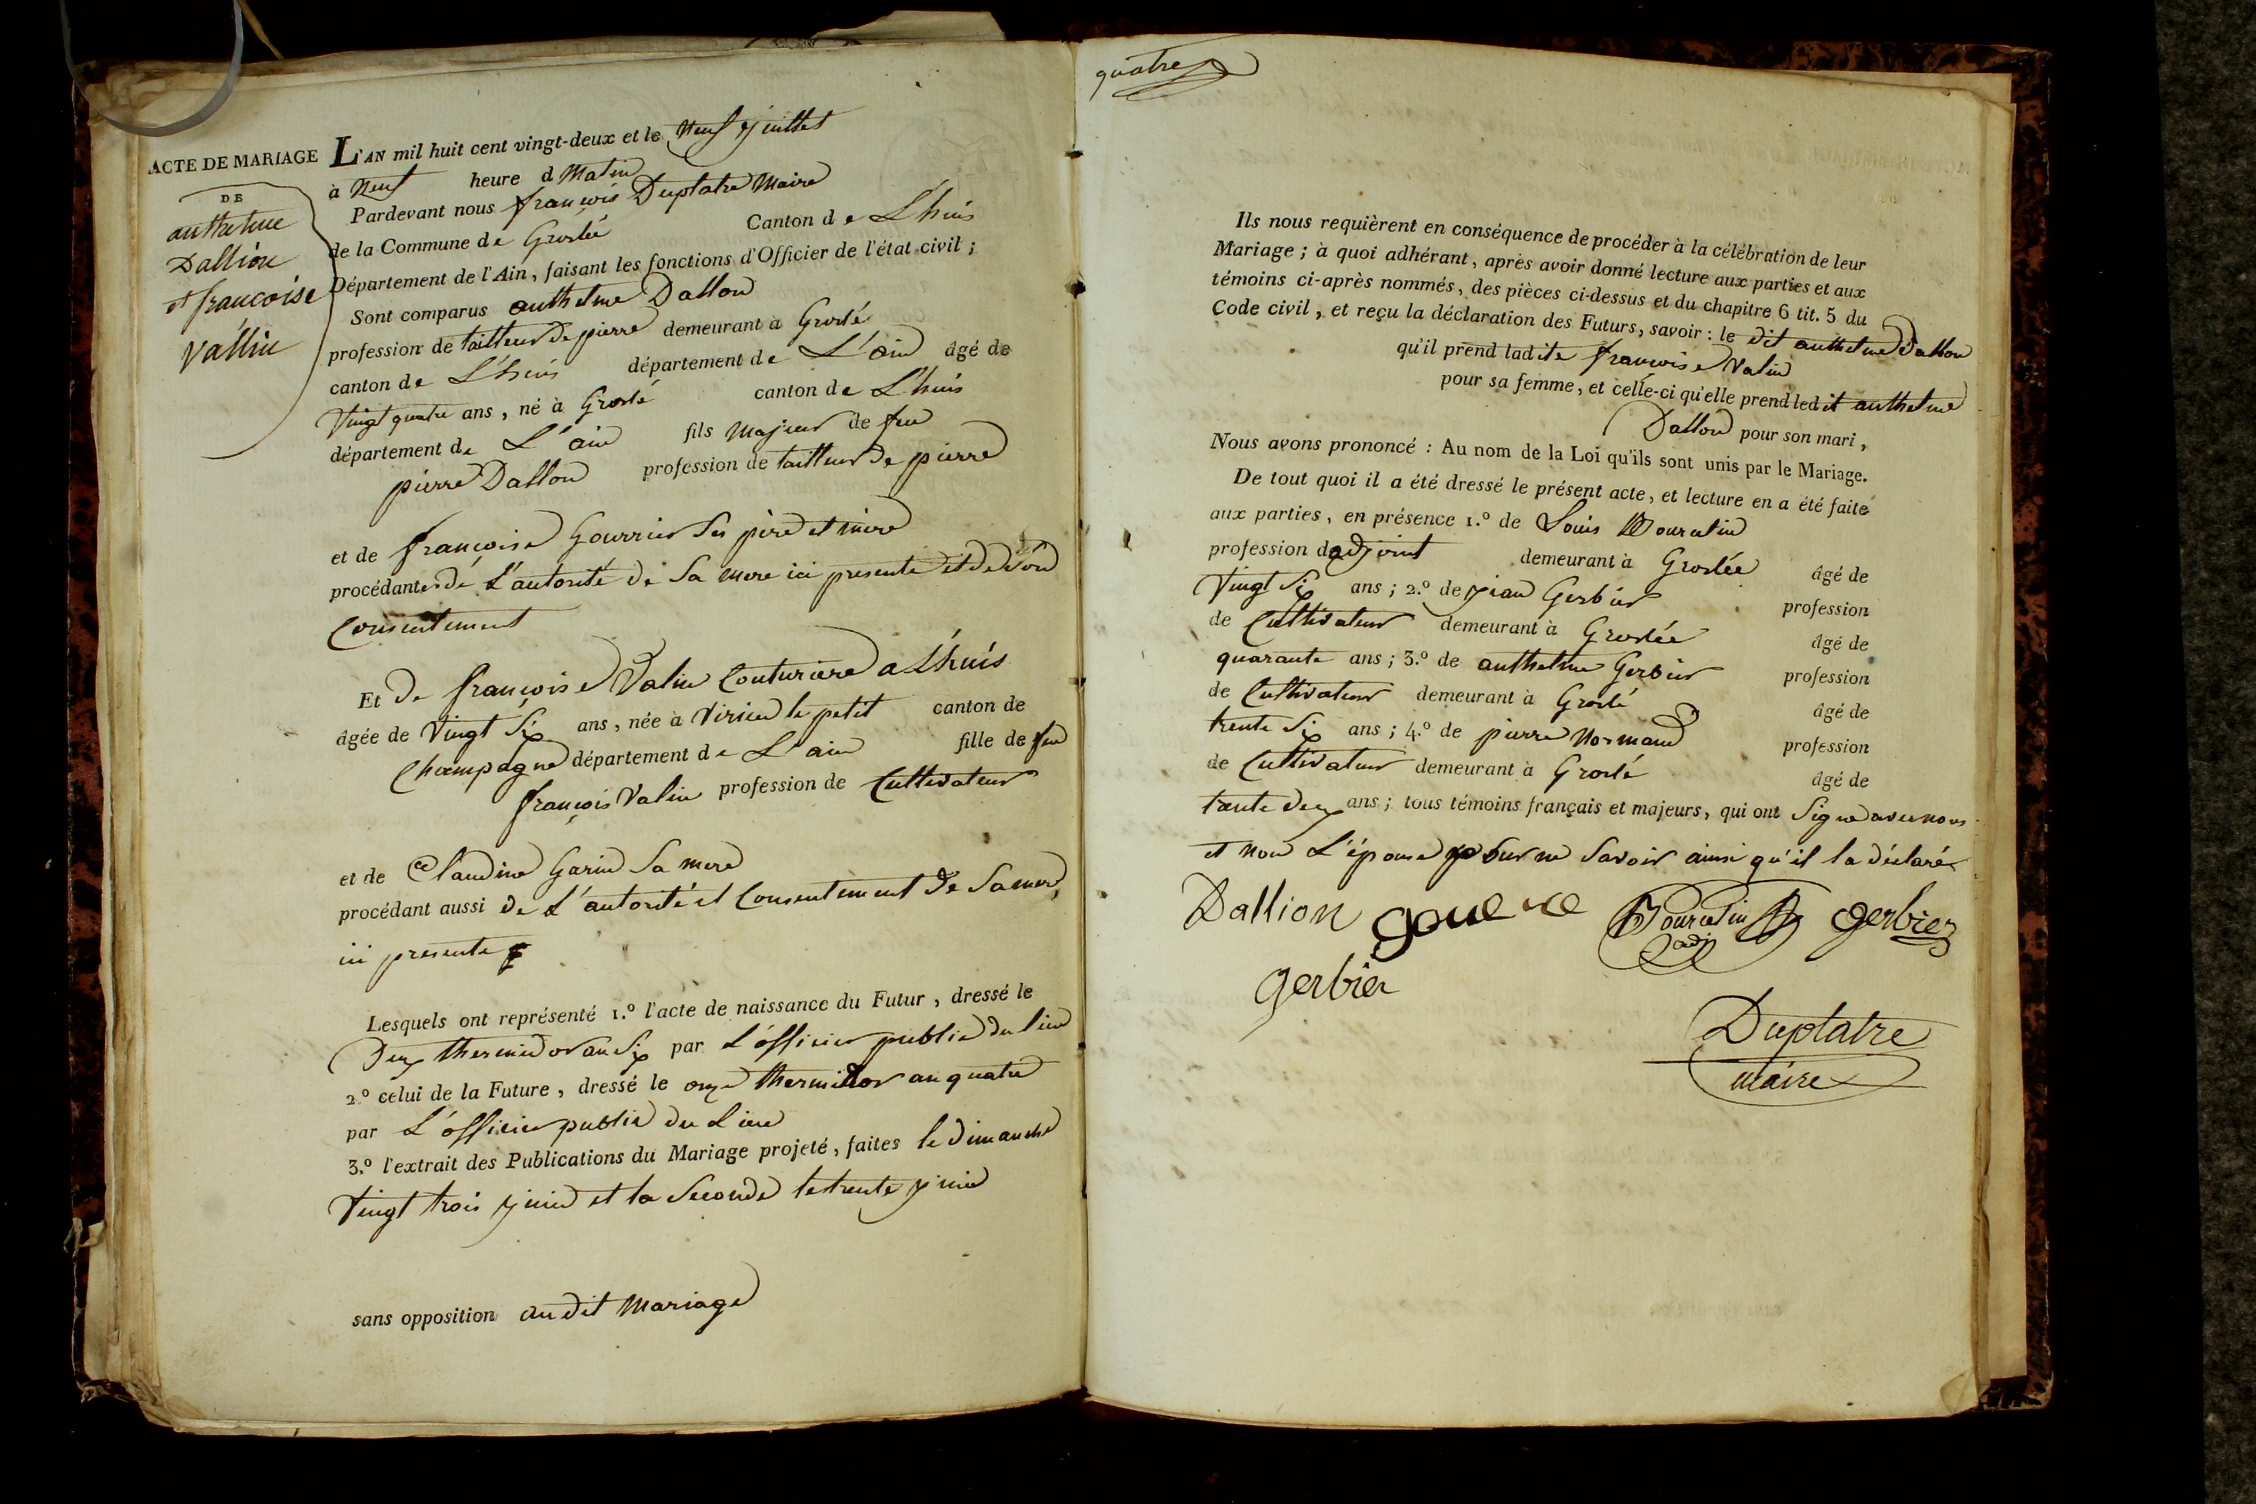 ACTE DE MARIAGE
DE
anthelme
Dallion
et françoise
Vallin
L'AN mil huit cent vingt-deux et le Neuf juillet
à Neuf heure d Matin
Pardevant nous françois Duplatre Maire
de la Commune de Groslée Canton de L'huis
Département de l'Ain, faisant les fonctions d'Officier de l'état civil ;
Sont comparus anthelme Dallon
profession de tailleur de pierre demeurant à Groslé
canton de L'huis département de L'ain âgé de
Vingt quatre ans, né à Groslé canton de L'huis
département de L'ain fils Majeur de feu
pierre Dallon profession de tailleur de pierre
et de françoise Gourrier Ses pere et mere
procédant de L'autorité de Sa mere ici presente et de Son
Consentement
Et de françoise Valin Couturiere a L'huis
âgée de Vingt Six ans, née à Virieu le petit canton de
Champagne département de L'ain fille de feu
françois Valin profession de Cultivateur
et de Claudine Garin Sa mere
procédant aussi de L'autorité et Consentement de Sa mere,
ici presente
Lesquels ont représenté 1.º l'acte de naissance du Futur, dressé le
Deux thermidor an Six par L'officier public du lieu
2.º celui de la Future, dressé le onze thermidor an quatre
par L'officier public du Lieu
3.º l'extrait des Publications du Mariage projeté, faites le dimanche
Vingt trois juin et la Seconde le trente juin
sans opposition audit Mariage
quatre
Ils nous requièrent en conséquence de procéder à la célébration de leur
Mariage ; à quoi adhérant, après avoir donné lecture aux parties et aux
témoins ci-après nommés, des pièces ci-dessus et du chapitre 6 tit. 5 du
Code civil, et reçu la déclaration des Futurs, savoir : le dit anthelme Dallon
qu'il prend ladite françoise Valin
pour sa femme, et celle-ci qu'elle prend ledit anthelme
Dallon pour son mari,
Nous avons prononcé : Au nom de la Loi qu'ils sont unis par le Mariage.
De tout quoi il a été dressé le présent acte, et lecture en a été faite
aux parties, en présence 1.º de Louis
profession d adjoint demeurant à Groslée âgé de
Vingt Six ans ; 2.º de jean Gerbier profession
de Cultivateur demeurant à Groslée âgé de
quarante ans ; 3.º de anthelme Gerbier profession
de Cultivateur demeurant à Groslé âgé de
trente Six ans ; 4.º de pierre Normand profession
de Cultivateur demeurant à Groslé âgé de
ans ; tous témoins français et majeurs, qui ont Signé avec nous
et non L'épouse pour ne Savoir ainsi qu'il la déclaré
Dallion gerbier
gerbier
Duplatre
maire